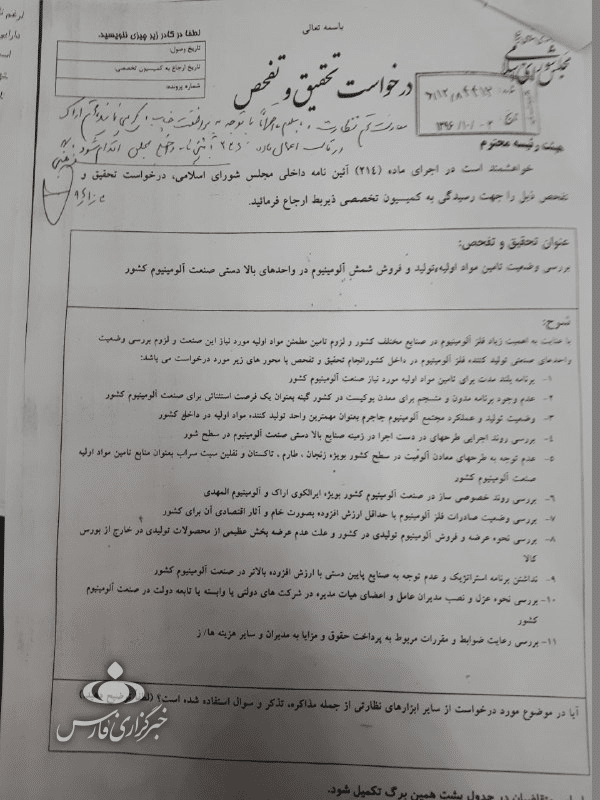 باسمه تعالی
لطفا در کادر زیر چیزی ننویسید.
تاریخ وصول:
تاریخ ارجاع به کمیسیون تخصصی:
شماره پرونده:
مجلس شورای اسلامی
درخواست تحقیق و تفحص
هیئت رئیسه محترم
خواهشمند است در اجرای ماده (۲۱۴) آئین نامه داخلی مجلس شورای اسلامی، درخواست تحقیق و
تفحص ذیل را جهت رسیدگی به کمیسیون تخصصی ذیربط ارجاع فرمائید.
عنوان تحقیق و تفحص:
بررسی وضعیت تامین مواد اولیه،تولید و فروش شمش آلومینیوم در واحدهای بالا دستی صنعت آلومینیوم کشور
شرح:
با عنایت به اهمیت زیاد فلز آلومینیوم در صنایع مختلف کشور و لزوم تامین مطمئن مواد اولیه مورد نیاز این صنعت و لزوم بررسی وضعیت
واحدهای صنعتی تولید کننده فلز آلومینیوم در داخل کشورانجام تحقیق و تفحص با محور های زیر مورد درخواست می باشد:
۱- برنامه بلند مدت برای تامین مواد اولیه مورد نیاز صنعت آلومینیوم کشور
۲- عدم وجود برنامه مدون و منسجم برای معدن بوکیست در کشور گینه بعنوان یک فرصت استثنائی برای صنعت آلومینیوم کشور
۳- وضعیت تولید و عملکرد مجتمع آلومینیوم جاجرم بعنوان مهمترین واحد تولید کننده مواد اولیه در داخل کشور
۴- بررسی روند اجرایی طرحهای در دست اجرا در زمینه صنایع بالا دستی صنعت آلومینیوم در سطح شور
۵- عدم توجه به طرحهای معادن آلونیت در سطح کشور بویژه زنجان ، طارم ، تاکستان و نفلین سینت سراب بعنوان منابع تامین مواد اولیه
صنعت آلومینیوم کشور
۶- بررسی روند خصوصی ساز در صنعت آلومینیوم کشور بویژه ایرالکوی اراک و آلومینیوم المهدی
۷- بررسی وضعیت صادرات فلز آلومینیوم با حداقل ارزش افزوده بصورت خام و آثار اقتصادی آن برای کشور
۸- بررسی نحوه عرضه و فروش آلومینیوم تولیدی در کشور و علت عدم عرضه بخش عظیمی از محصولات تولیدی در خارج از بورس
کالا
۹- نداشتن برنامه استراتژیک و عدم توجه به صنایع پایین دستی با ارزش افزوده بالاتر در صنعت آلومینیوم کشور
۱۰- بررسی نحوه عزل و نصب مدیران عامل و اعضای هیات مدیره در شرکت های دولتی یا وابسته یا تابعه دولت در صنعت آلومینیوم
کشور
۱۱- بررسی رعایت ضوابط و مقررات مربوط به پرداخت حقوق و مزایا به مدیران و سایر هزینه ها/ ز
آیا در موضوع مورد درخواست از سایر ابزارهای نظارتی از جمله مذاکره، تذکر و سوال استفاده شده است؟
خبرگزاری فارس
در جدول پشت همین برگ تکمیل شود.